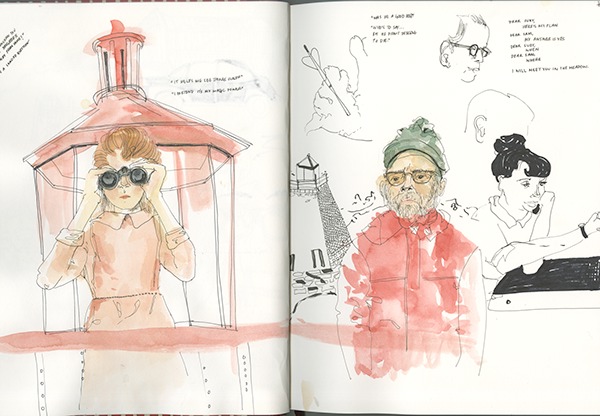 "IT HELPS ME SEE THINGS CLOSER"
"I PRETEND ITS MY MAGIC POWER"
"WAS HE A GOOD DOG?"
"WHO'S TO SAY...
HE DIDN'T DESERVE
TO DIE."
DEAR SUZY,
HERE'S MY PLAN
DEAR SAM,
MY ANSWER IS YES
DEAR SUZY,
WHEN
DEAR SAM,
WHERE
I WILL MEET YOU IN THE MEADOW.